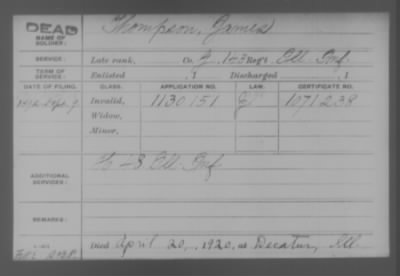 DEAD
NAME OF SOLDIER: Thompson, James
SERVICE: Late rank, Co. Reg't Ill. Inf.
TERM OF SERVICE: Enlisted , 1 Discharged , 1
DATE OF FILING. CLASS. APPLICATION NO. LAW. CERTIFICATE NO.
1892 Sept. 9 Invalid, 1130151 1071238
Widow,
Minor,
ADDITIONAL SERVICES: Ill Inf
REMARKS:
Died April 20, 1920, at Decatur, Ill